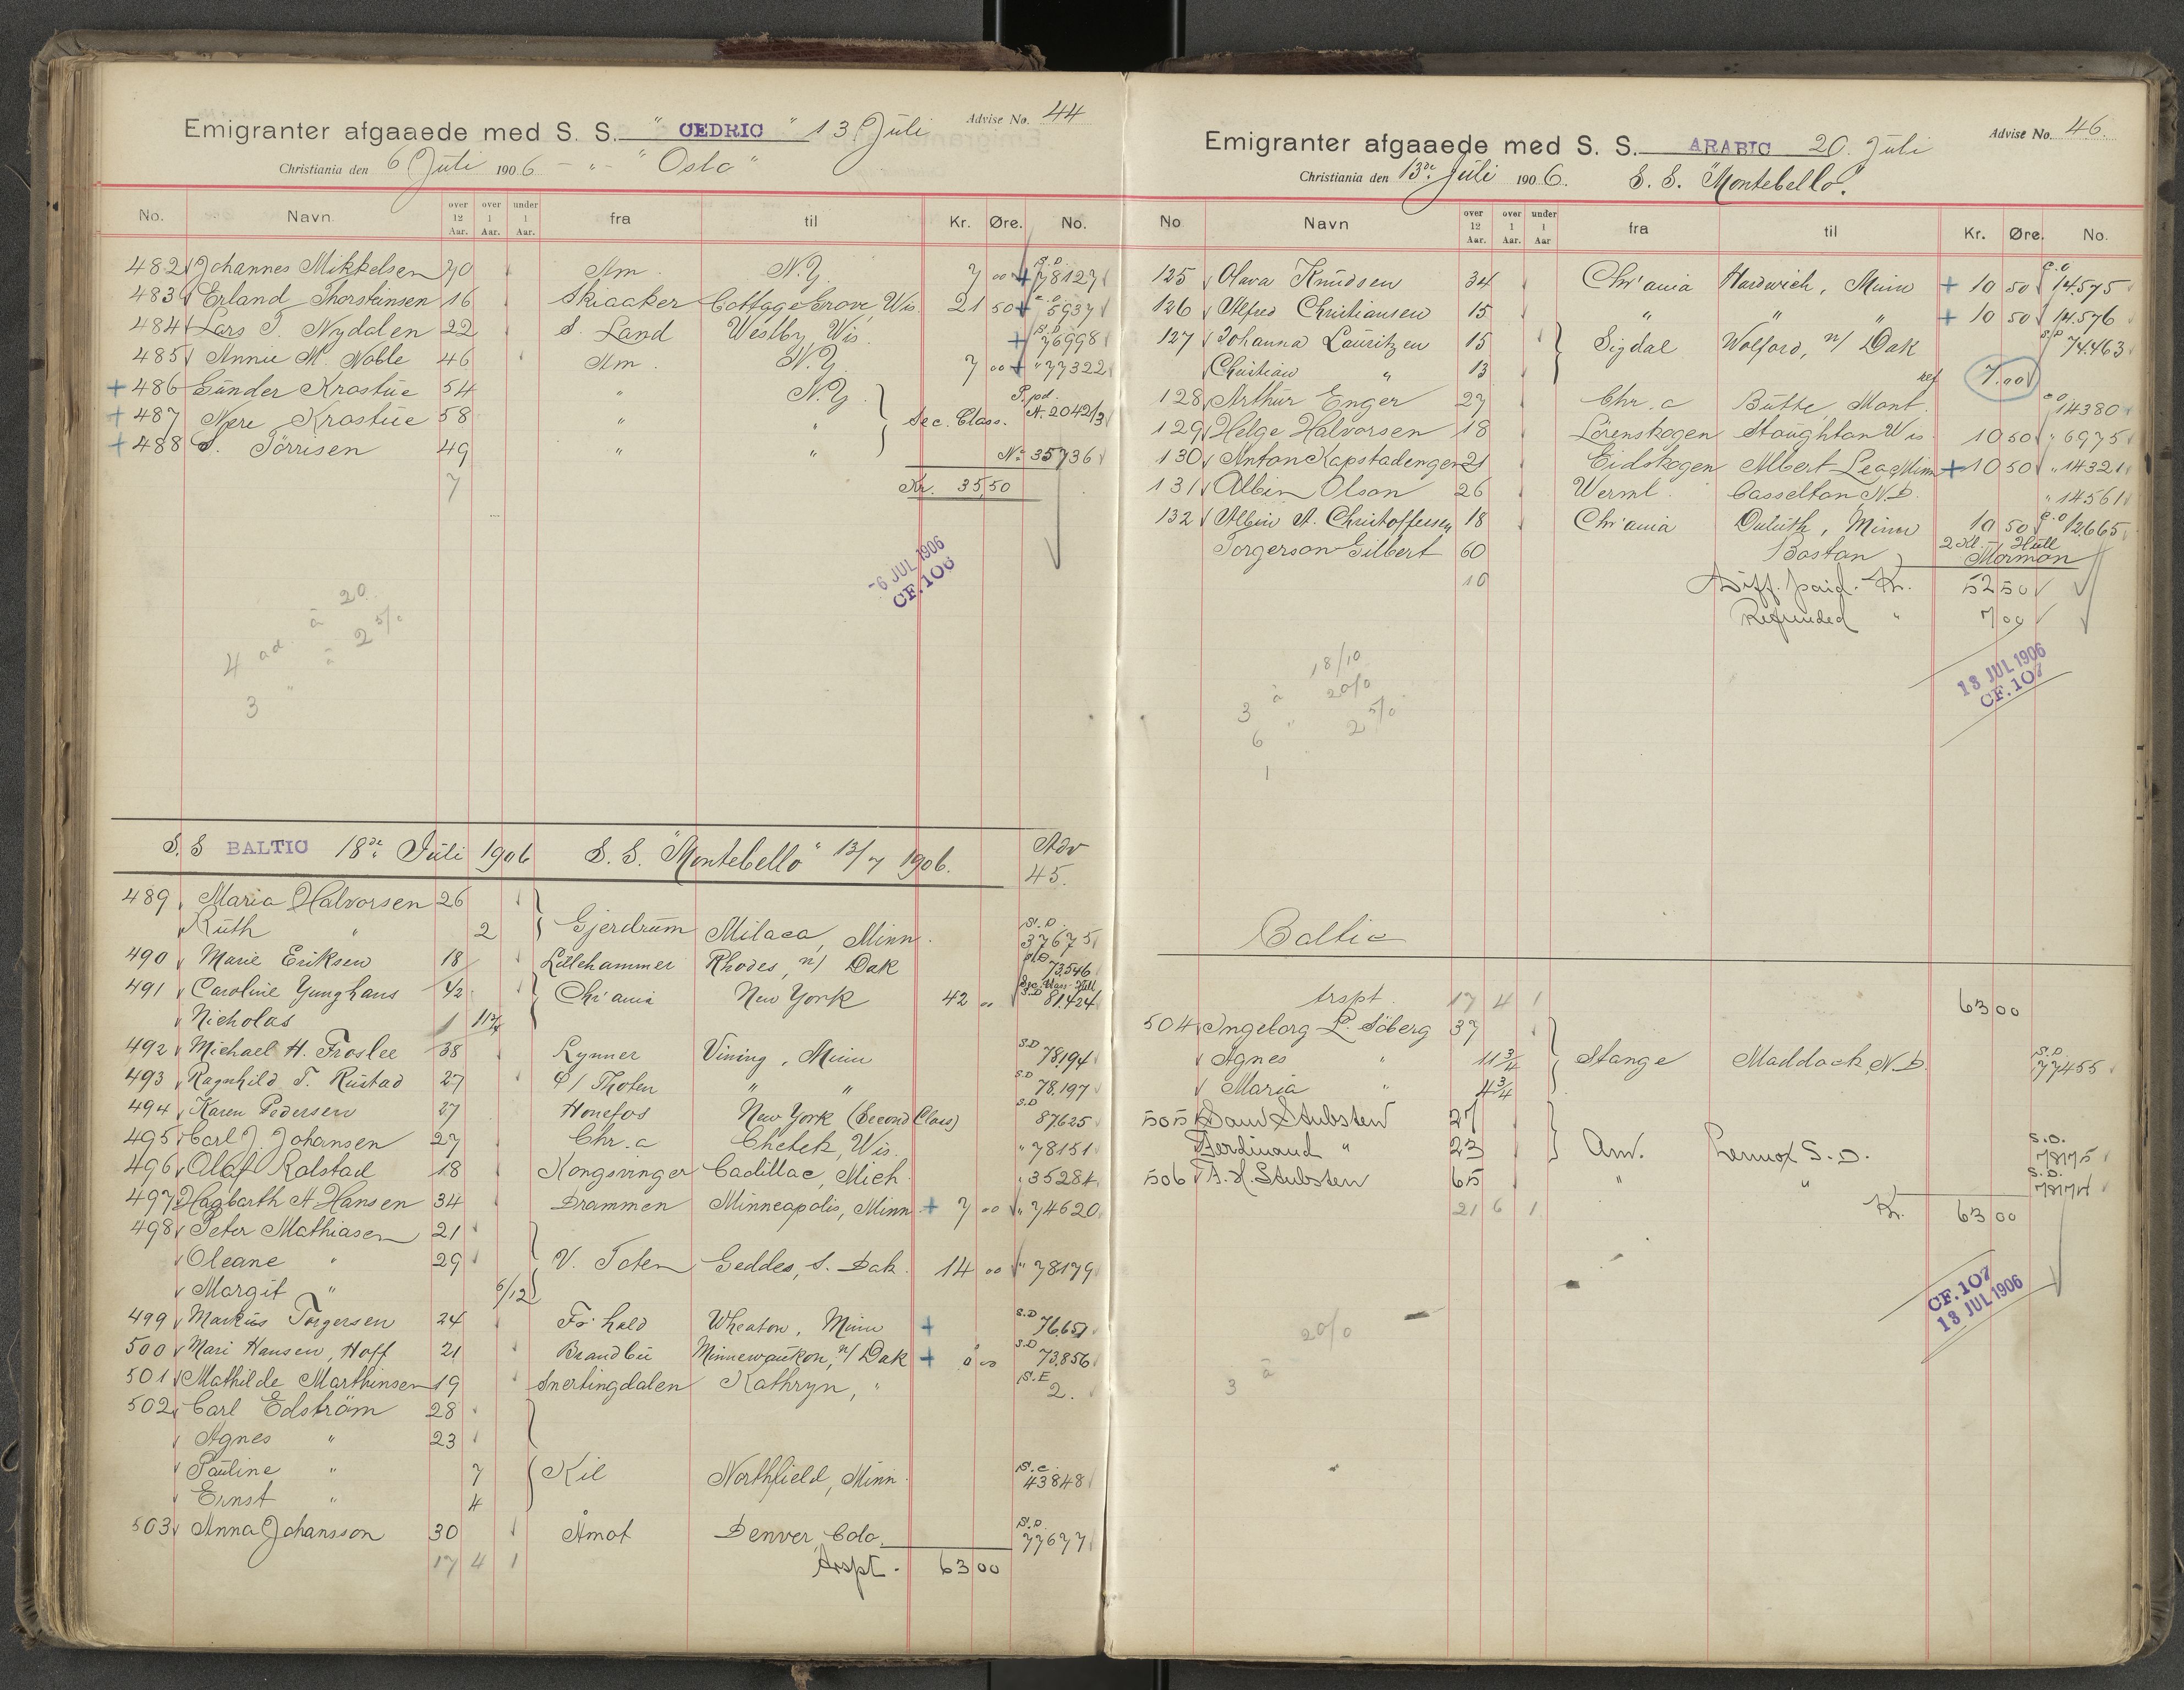 Advise No. 44
Emigranter afgaaede med S. S. " CEDRIC " 13 Juli
Christiania den 6 Juli 1906 - " - "Oslo"
No. Navn over 12 Aar. over 1 Aar. under 1 Aar. fra til Kr. Øre. No.
482 Johannes Mikkelsen 70 Am. N.Y. 7 00 + S.D. 78127
483 Erland Thorsteinsen 16 Skiaaker Cottage Grove, Wis. 21 50 + c.o 5937
484 Lars T. Nydalen 22 S. Land Westby Wis. + S.D 76998
485 Annie M. Noble 46 Am. N.Y. 7 00 + " 77322
+ 486 Gunder Krostue 54 " N.Y. P.pd.
+ 487 Nere Krostue 58 " " Sec. Class. A. 2042/3
+ 488 S. Törrisen 49 " " No 35736
7 Kr. 35,50
-6 JUL 1906
CF.106
4 ad. à 20
3 " à 2 5/0
S.S BALTIC 18de Juli 1906 S.S. "Montebello" 13/7 1906. Adv 45.
489 Maria Halvorsen 26
Ruth " 2 Gjerdrum Milaca, Minn. S.D. 37675
490 Marie Eriksen 18 Lillehammer Rhodes, n/ Dak S.D. 73.546
491 Caroline Yunghans 42 Chr'ania New York 42 " Sec. Class Hull S.D 81.424
Nicholas 1 11 3/4
492 Michael H. Froslee 38 Rynner Vining, Minn S.D 78.194
493 Ragnhild T. Rustad 27 Ø/ Thoten " " S.D 78.197
494 Karen Pedersen 27 Honefos New York (Second Class) S.D 87.625
495 Carl J. Johansen 27 Chr.a Chetek, Wis. " 78151
496 Olaf Kolstad 18 Kongsvinger Cadillac, Mich. " 35284
497 Hagbarth A Hansen 34 Drammen Minneapolis, Minn. + 7 00 " 74620
498 Peter Mathiasen 21
Oleane " 29 V. Toten Geddes, S. Dak. 14 00 " 78179
Margit " 6/12
499 Markus Torgersen 24 Fr.hald Wheaton, Minn + S.D 76.651
500 Mari Hansen, Hoff 21 Brandbu Minnewaukon, n/ Dak + S.D 73.856
501 Mathilde Marthinsen 19 Snertingdalen Kathryn, " S.E 2.
502 Carl Edström 28
Agnes " 23
Pauline " 7 Kil Northfield, Minn. S.C. 43848
Ernst " 4
503 Anna Johansson 30 Åmot Denver, Colo. S.D. 77677
17 4 1 trspt. 63 00
Advise No. 46.
Emigranter afgaaede med S. S. ARABIC 20. Juli
Christiania den 13de Juli 1906. S.S. "Montebello."
No Navn over 12 Aar. over 1 Aar. under 1 Aar fra til Kr. Øre. No.
125 Olava Knudsen 34 Chr'ania Hardwich, Minn + 10 50 c.o 14.575
126 Alfred Christiansen 15 " " " + 10 50 14.576
127 Johanna Lauritzen 15 Sigdal Wolford, n/ Dak S.D 74.463
Christian " 13 ref 7.00
128 Arthur Enger 27 Chr.a Butte, Mont. c.o 14380
129 Helge Halvorsen 18 Lörenskogen Stoughton Wis. 10 50 " 6975
130 Anton Kapstadengen 21 Eidskogen Albert Lea Minn + 10 50 " 14321
131 Albin Olson 26 Werml. Casselton N.D. " 14561
132 Albin A. Christoffersen 18 Chr'ania Duluth, Minn 10 50 c.o 12.665
Torgerson Gilbert 60 Boston 2 Kl. - Hull Mormon
10 Diff. paid. Kr. 52 50
Refunded " 7 00
13 JUL 1906
CF.107
18/10
3 à 20/0
6 " 2 5/0
1
Baltic
trspt. 17 4 1 63 00
504 Ingeborg L. Söberg 37
Agnes " 11 3/4 Stange Maddock, N.D. S.D. 77455
Maria " 4 3/4
505 Sam Stubsten 27
Ferdinand " 23 Am. Lennox S.D. S.D. 78175
506 A. H. Stubsten 65 " " S.D. 78174
21 6 1 Kr. 63 00
CF.107
13 JUL 1906
3 à 20/0